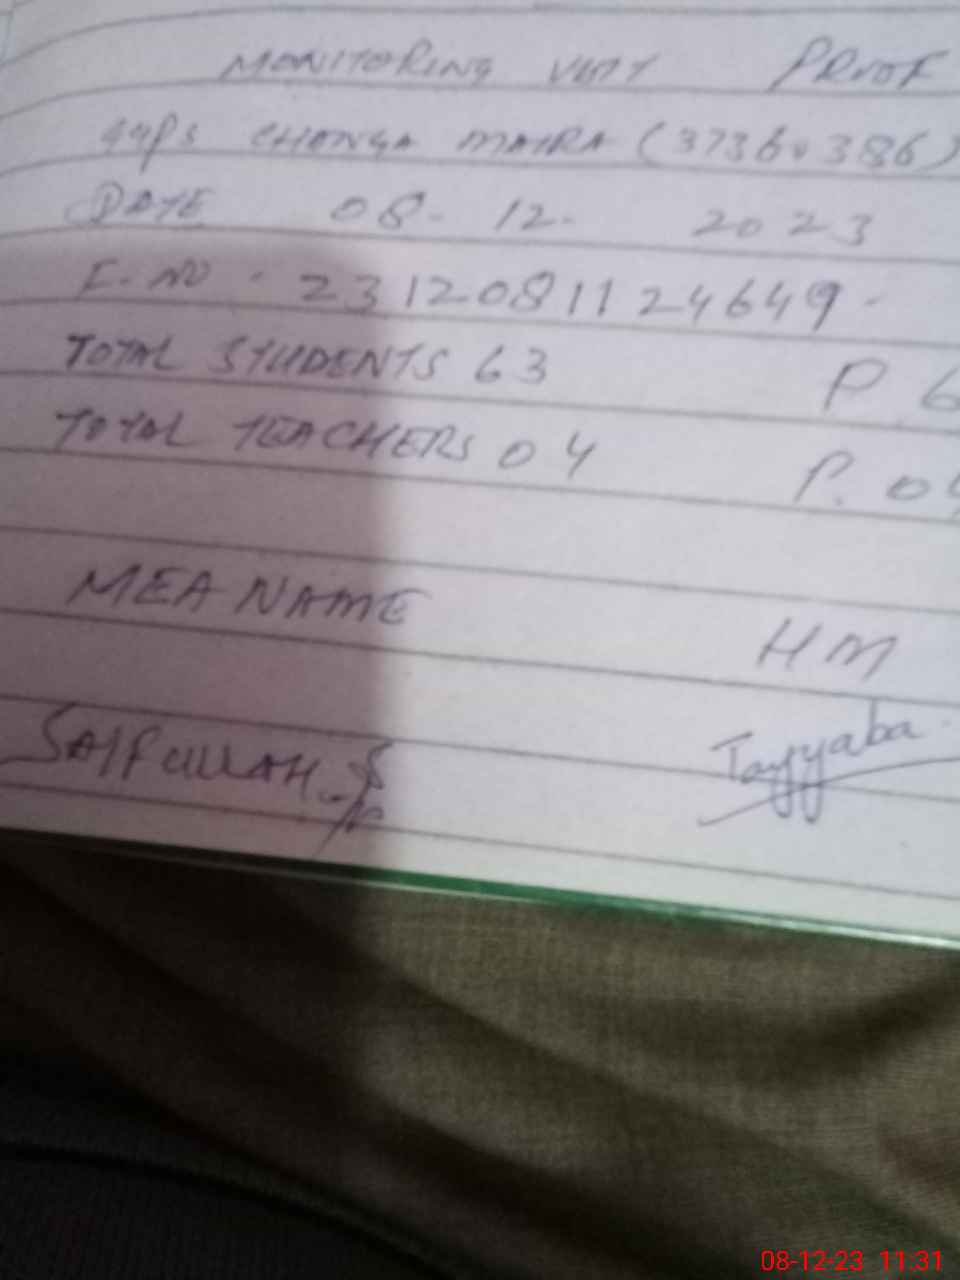 MONITORING VISIT PROOF
GGPS CHANGA MAIRA (37360386)
DATE 08- 12- 2023
E-NO - 23120811 24649-
TOTAL STUDENTS 63 P 6
TOTAL TEACHERS 04 P. 04
MEA NAME HM
SAIFULLAH Tayyaba
08-12-23 11:31